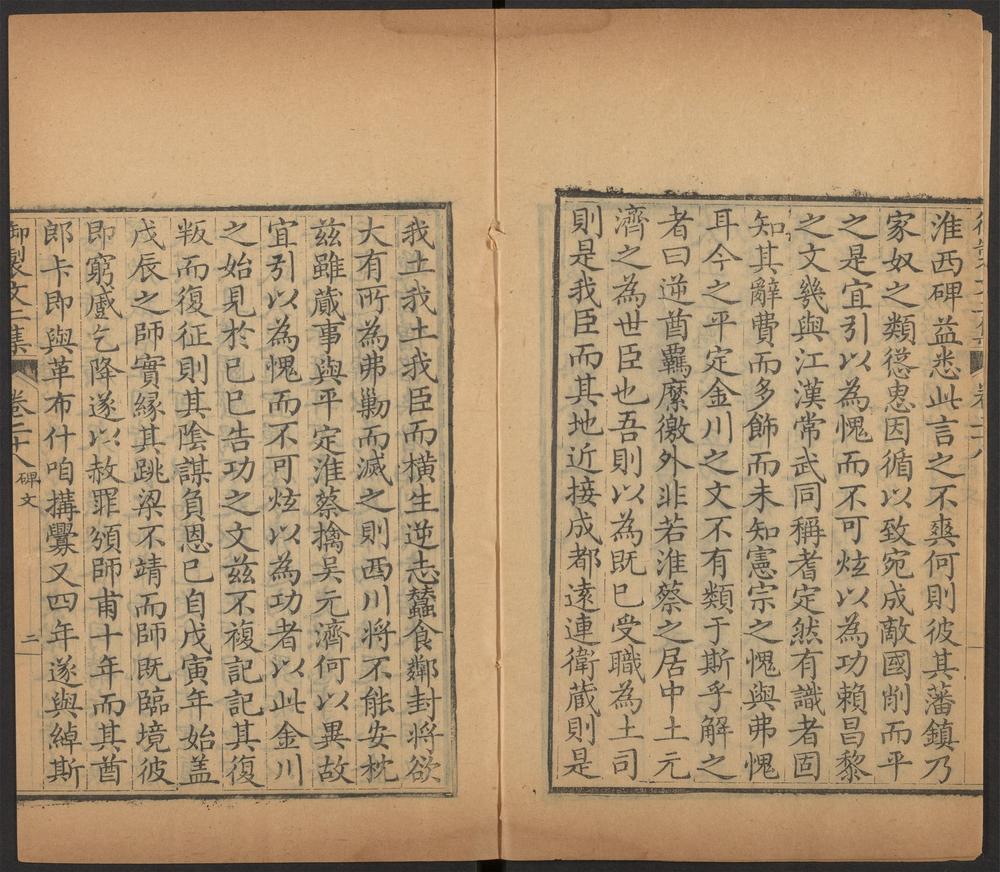 淮西碑益悉此言之不爽何則彼其藩鎮乃
家奴之類慫恿因循以致宛成敵國削而平
之是宜引以為愧而不可炫以為功賴昌黎
之文幾與江漢常武同稱耆定然有識者固
知其辭費而多飾而未知憲宗之愧與弗愧
耳今之平定金川之文不有類于斯乎解之
者曰逆酋羈縻徼外非若淮蔡之居中土元
濟之為世臣也吾則以為既已受職為土司
則是我臣而其地近接成都遠連衛藏則是
我土我土我臣而橫生逆志蠶食鄰封將欲
大有所為弗勦而滅之則西川將不能安枕
茲雖蕆事與平定淮蔡擒吳元濟何以異故
宜引以為愧而不可炫以為功者以此金川
之始見於己巳告功之文茲不複記記其復
叛而復征則其陰謀負恩已自戊寅年始蓋
戊辰之師實緣其跳梁不靖而師既臨境彼
即窮蹙乞降遂以赦罪頒師甫十年而其酋
郎卡即與革布什咱搆釁又四年遂與綽斯
御製文二集 卷二十八 碑文 二